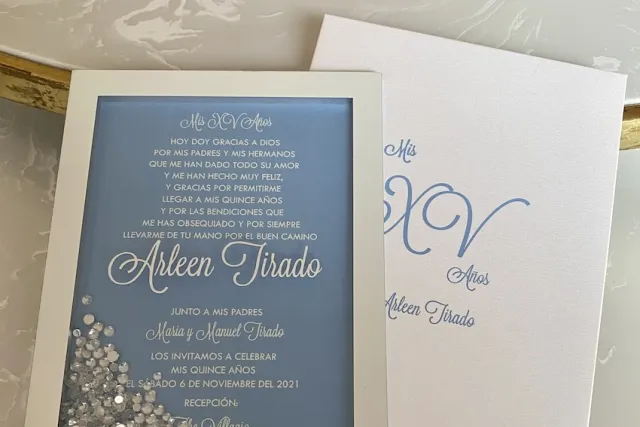 Mis XV Años
HOY DOY GRACIAS A DIOS
POR MIS PADRES Y MIS HERMANOS
QUE ME HAN DADO TODO SU AMOR
Y ME HAN HECHO MUY FELIZ,
Y GRACIAS POR PERMITIRME
LLEGAR A MIS QUINCE AÑOS
Y POR LAS BENDICIONES QUE
ME HAS OBSEQUIADO Y POR SIEMPRE
LLEVARME DE TU MANO POR EL BUEN CAMINO
Arleen Tirado
JUNTO A MIS PADRES
Maria y Manuel Tirado
LOS INVITAMOS A CELEBRAR
MIS QUINCE AÑOS
EL SÁBADO 6 DE NOVIEMBRE DEL 2021
RECEPCIÓN:
The Villagio
Mis
XV
Años
Arleen Tirado